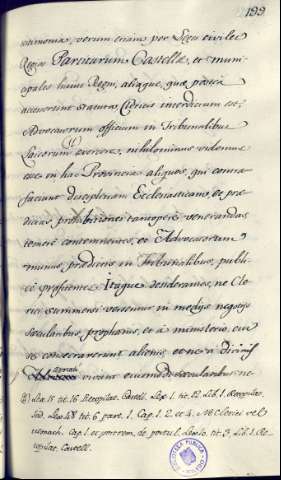 199
timonia, verum etiam per Leges civiles
Regias Partitarum Castellæ, et muni-
cipales huius Regni, aliaque, quæ postea
accesserint statuta Clericis interdictum sit,
Advocatorum officium in Tribunalibus
Laicorum exercere, nihilominus videmus
esse in hac Provincia aliquos, qui contra
faciunt disciplinam Ecclesiasticam, et præ-
dictas prohibitiones tantopere venerandas
temere contemnentes, et Advocatorum
munus, prædictis in Tribunalibus, publi-
cè profitentur. Itaque desiderantes, ne Cle-
rici summersi versentur in medijs negotijs
sæcularibus, prophanis, et à ministerio, cui
se consecrarunt alienis, et ne à divinis
vivant eiusmodi sæcularibus ne-
Lex 15 tit. 16 Recopilat. Castell. Lex 1. tit. 12 Lib. 1. Recopilat.
Ind. Lex 48 tit. 6 part. 1. Cap. 1. 2. et 4. Clerici vel
monach. Cap. 1. de postul. Lex tit. 3 Lib. 1. Re-
copilat. Castell.